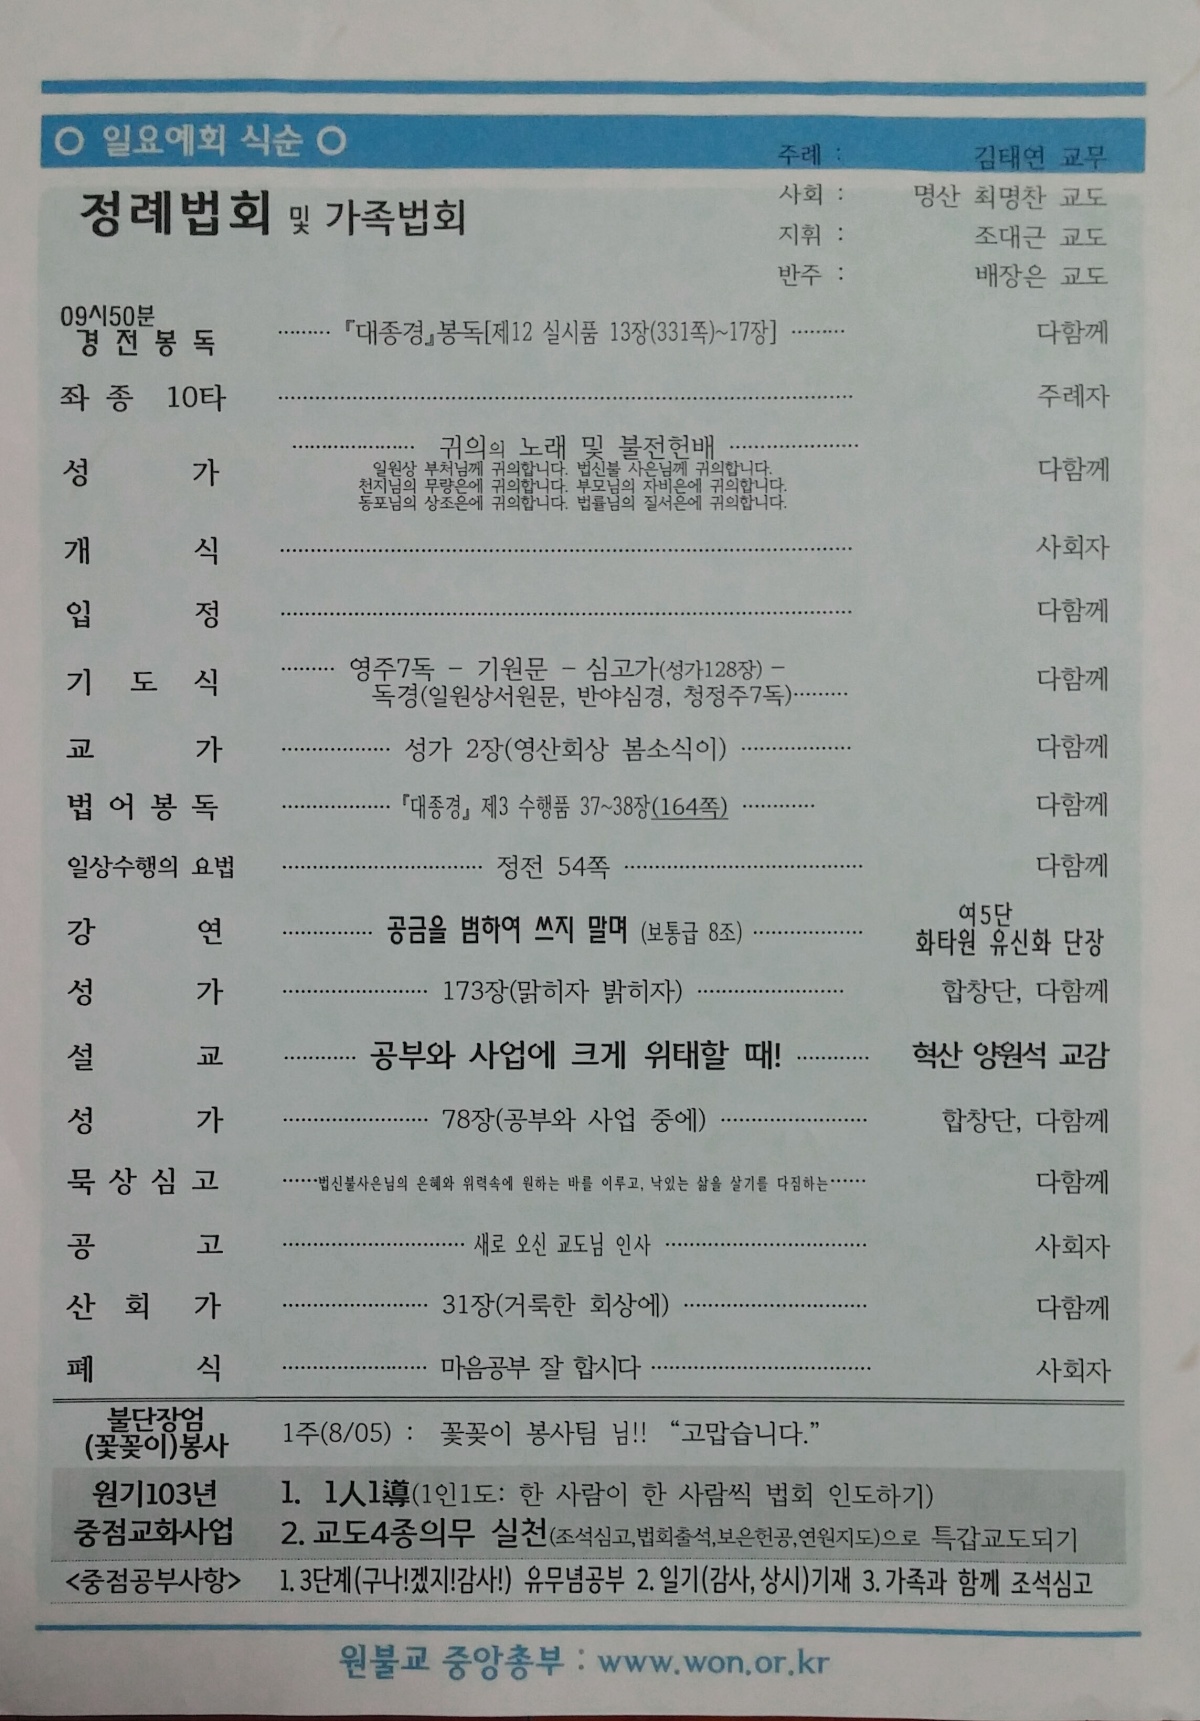 ○ 일요예회 식순 ○
주례 : 김태연 교무
정례법회 및 가족법회
사회 : 명산 최명찬 교도
지휘 : 조대근 교도
반주 : 배장은 교도
09시50분
경 전 봉 독 ········· 『대종경』봉독[제12 실시품 13장(331쪽)~17장] ········· 다함께
좌 종 10타 ········· 주례자
········· 귀의의 노래 및 불전헌배 ·········
성 가 일원상 부처님께 귀의합니다. 법신불 사은님께 귀의합니다. 다함께
천지님의 무량은에 귀의합니다. 부모님의 자비은에 귀의합니다.
동포님의 상조은에 귀의합니다. 법률님의 질서은에 귀의합니다.
개 식 ········· 사회자
입 정 ········· 다함께
기 도 식 ········· 영주7독 - 기원문 - 심고가(성가128장) - 다함께
독경(일원상서원문, 반야심경, 청정주7독)·········
교 가 ········· 성가 2장(영산회상 봄소식이) ········· 다함께
법 어 봉 독 ········· 『대종경』 제3 수행품 37~38장(164쪽) ········· 다함께
일상수행의 요법 ········· 정전 54쪽 ········· 다함께
여5단
강 연 ········· 공금을 범하여 쓰지 말며 (보통급 8조) ········· 화타원 유신화 단장
성 가 ········· 173장(맑히자 밝히자) ········· 합창단, 다함께
설 교 ········· 공부와 사업에 크게 위태할 때! ········· 혁산 양원석 교감
성 가 ········· 78장(공부와 사업 중에) ········· 합창단, 다함께
묵 상 심 고 ······법신불사은님의 은혜와 위력속에 원하는 바를 이루고, 낙있는 삶을 살기를 다짐하는······ 다함께
공 고 ········· 새로 오신 교도님 인사 ········· 사회자
산 회 가 ········· 31장(거룩한 회상에) ········· 다함께
폐 식 ········· 마음공부 잘 합시다 ········· 사회자
불단장엄
(꽃꽂이)봉사 1주(8/05) : 꽃꽂이 봉사팀 님!! “고맙습니다.”
원기103년 1. 1人1導(1인1도: 한 사람이 한 사람씩 법회 인도하기)
중점교화사업 2. 교도4종의무 실천(조석심고,법회출석,보은헌공,연원지도)으로 특갑교도되기
<중점공부사항> 1. 3단계(구나!겠지!감사!) 유무념공부 2. 일기(감사, 상시)기재 3. 가족과 함께 조석심고
원불교 중앙총부 : www.won.or.kr